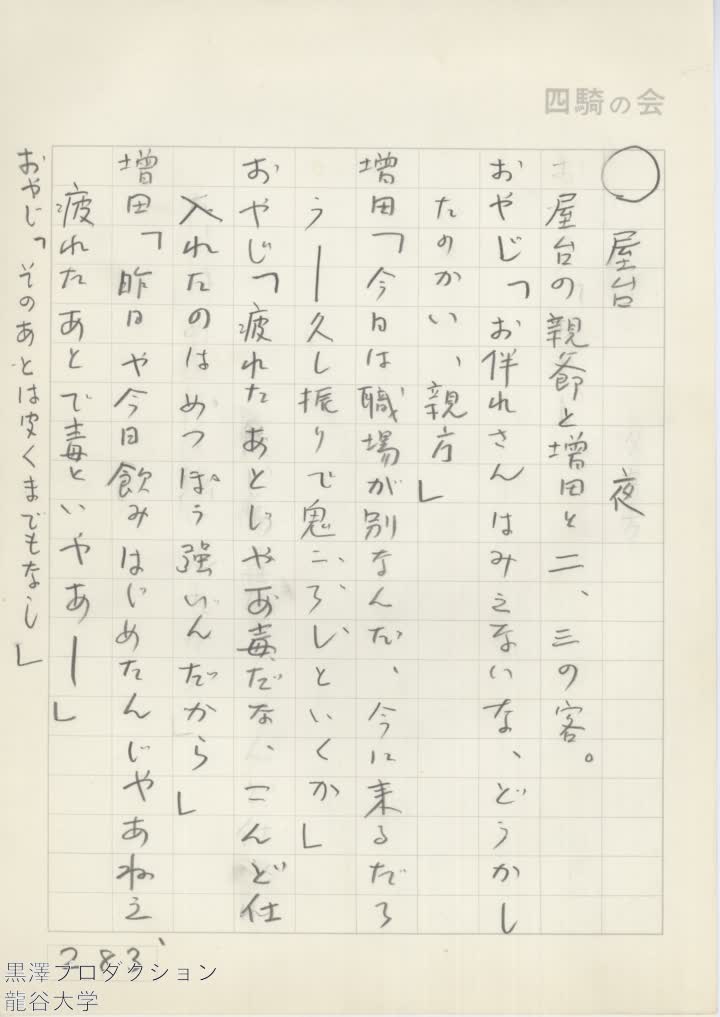 四騎の会
○ 屋台 夜
屋台の親爺と増田と二、三の客。
おやじ「お伴れさんはみえないな、どうかし
たのかい、親方」
増田「今日は職場が別なんだ、今に来るだろ
う――久し振りで鬼ころしといくか」
おやじ「疲れたあとじゃお毒だな、こんど仕
入れたのはめっぽう強いんだから」
増田「昨日や今日飲みはじめたんじゃあねえ
疲れたあとで毒といやあ――」
おやじ「そのあとは皮くまでもなし」
283
黒澤プロダクション
龍谷大学